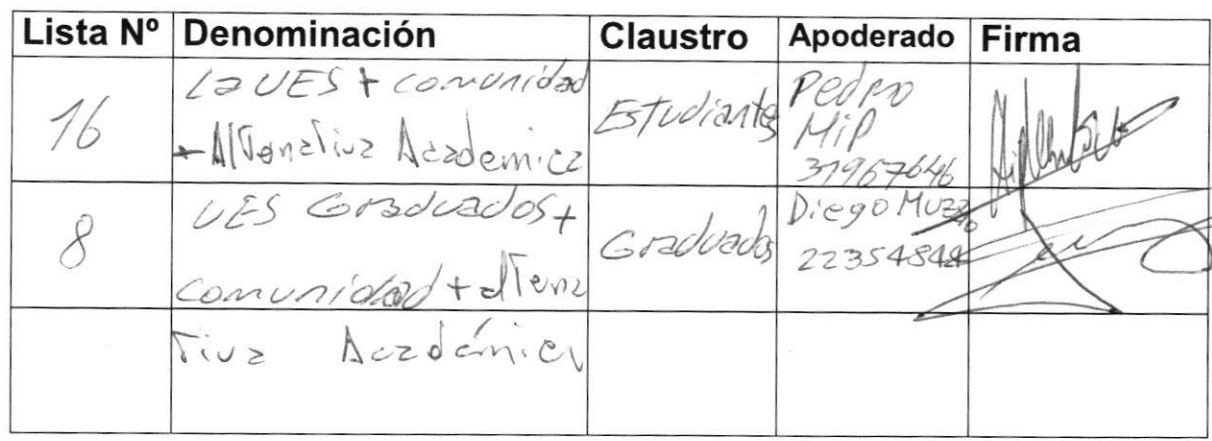 Lista Nº Denominación Claustro Apoderado Firma
16 La UES + comunidad + Alternativa Academica Estudiantes Pedro Mip 31967646
8 UES Graduados + comunidad + alterna Graduados Diego Muzzio 22354848
tiva Académica